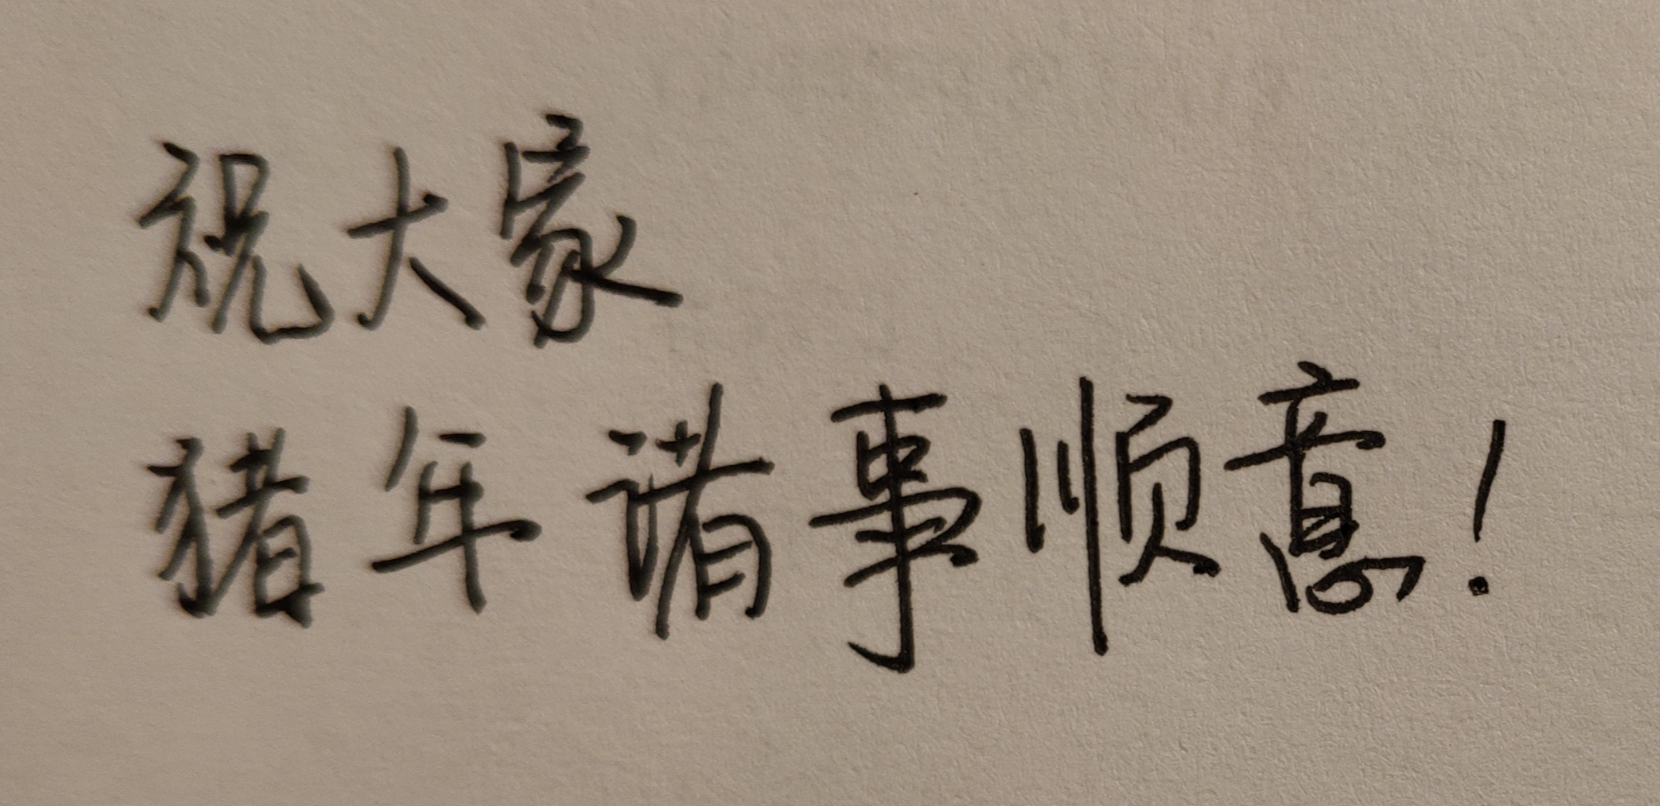 祝大家
猪年诸事顺意！